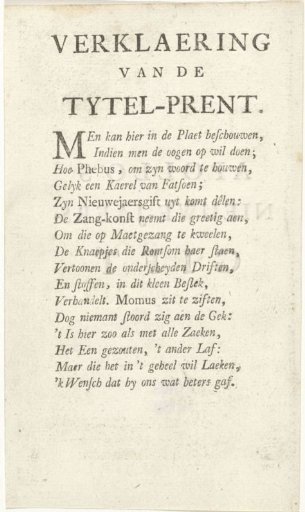 VERKLAERING
VAN DE
TYTEL-PRENT.
MEn kan hier in de Plaet beschouwen,
Indien men de oogen op wil doen;
Hoe Phebus, om zyn woord te houwen,
Gelyk een Kaerel van Fatsoen;
Zyn Nieuwejaersgift uyt komt délen:
De Zang-konst neemt die greetig aen,
Om die op Maetgezang te kweelen,
De Knaepjes die Rontsom haer staen,
Vertoonen de onderscheyden Driften,
En stoffen, in dit kleen Bestek,
Verhandelt. Momus zit te ziften,
Dog niemant stoord zig aen de Gek:
't Is hier zoo als met alle Zaeken,
Het Een gezouten, 't ander Laf:
Maer die het in 't geheel wil Laeken,
'k Wensch dat hy ons wat beters gaf.